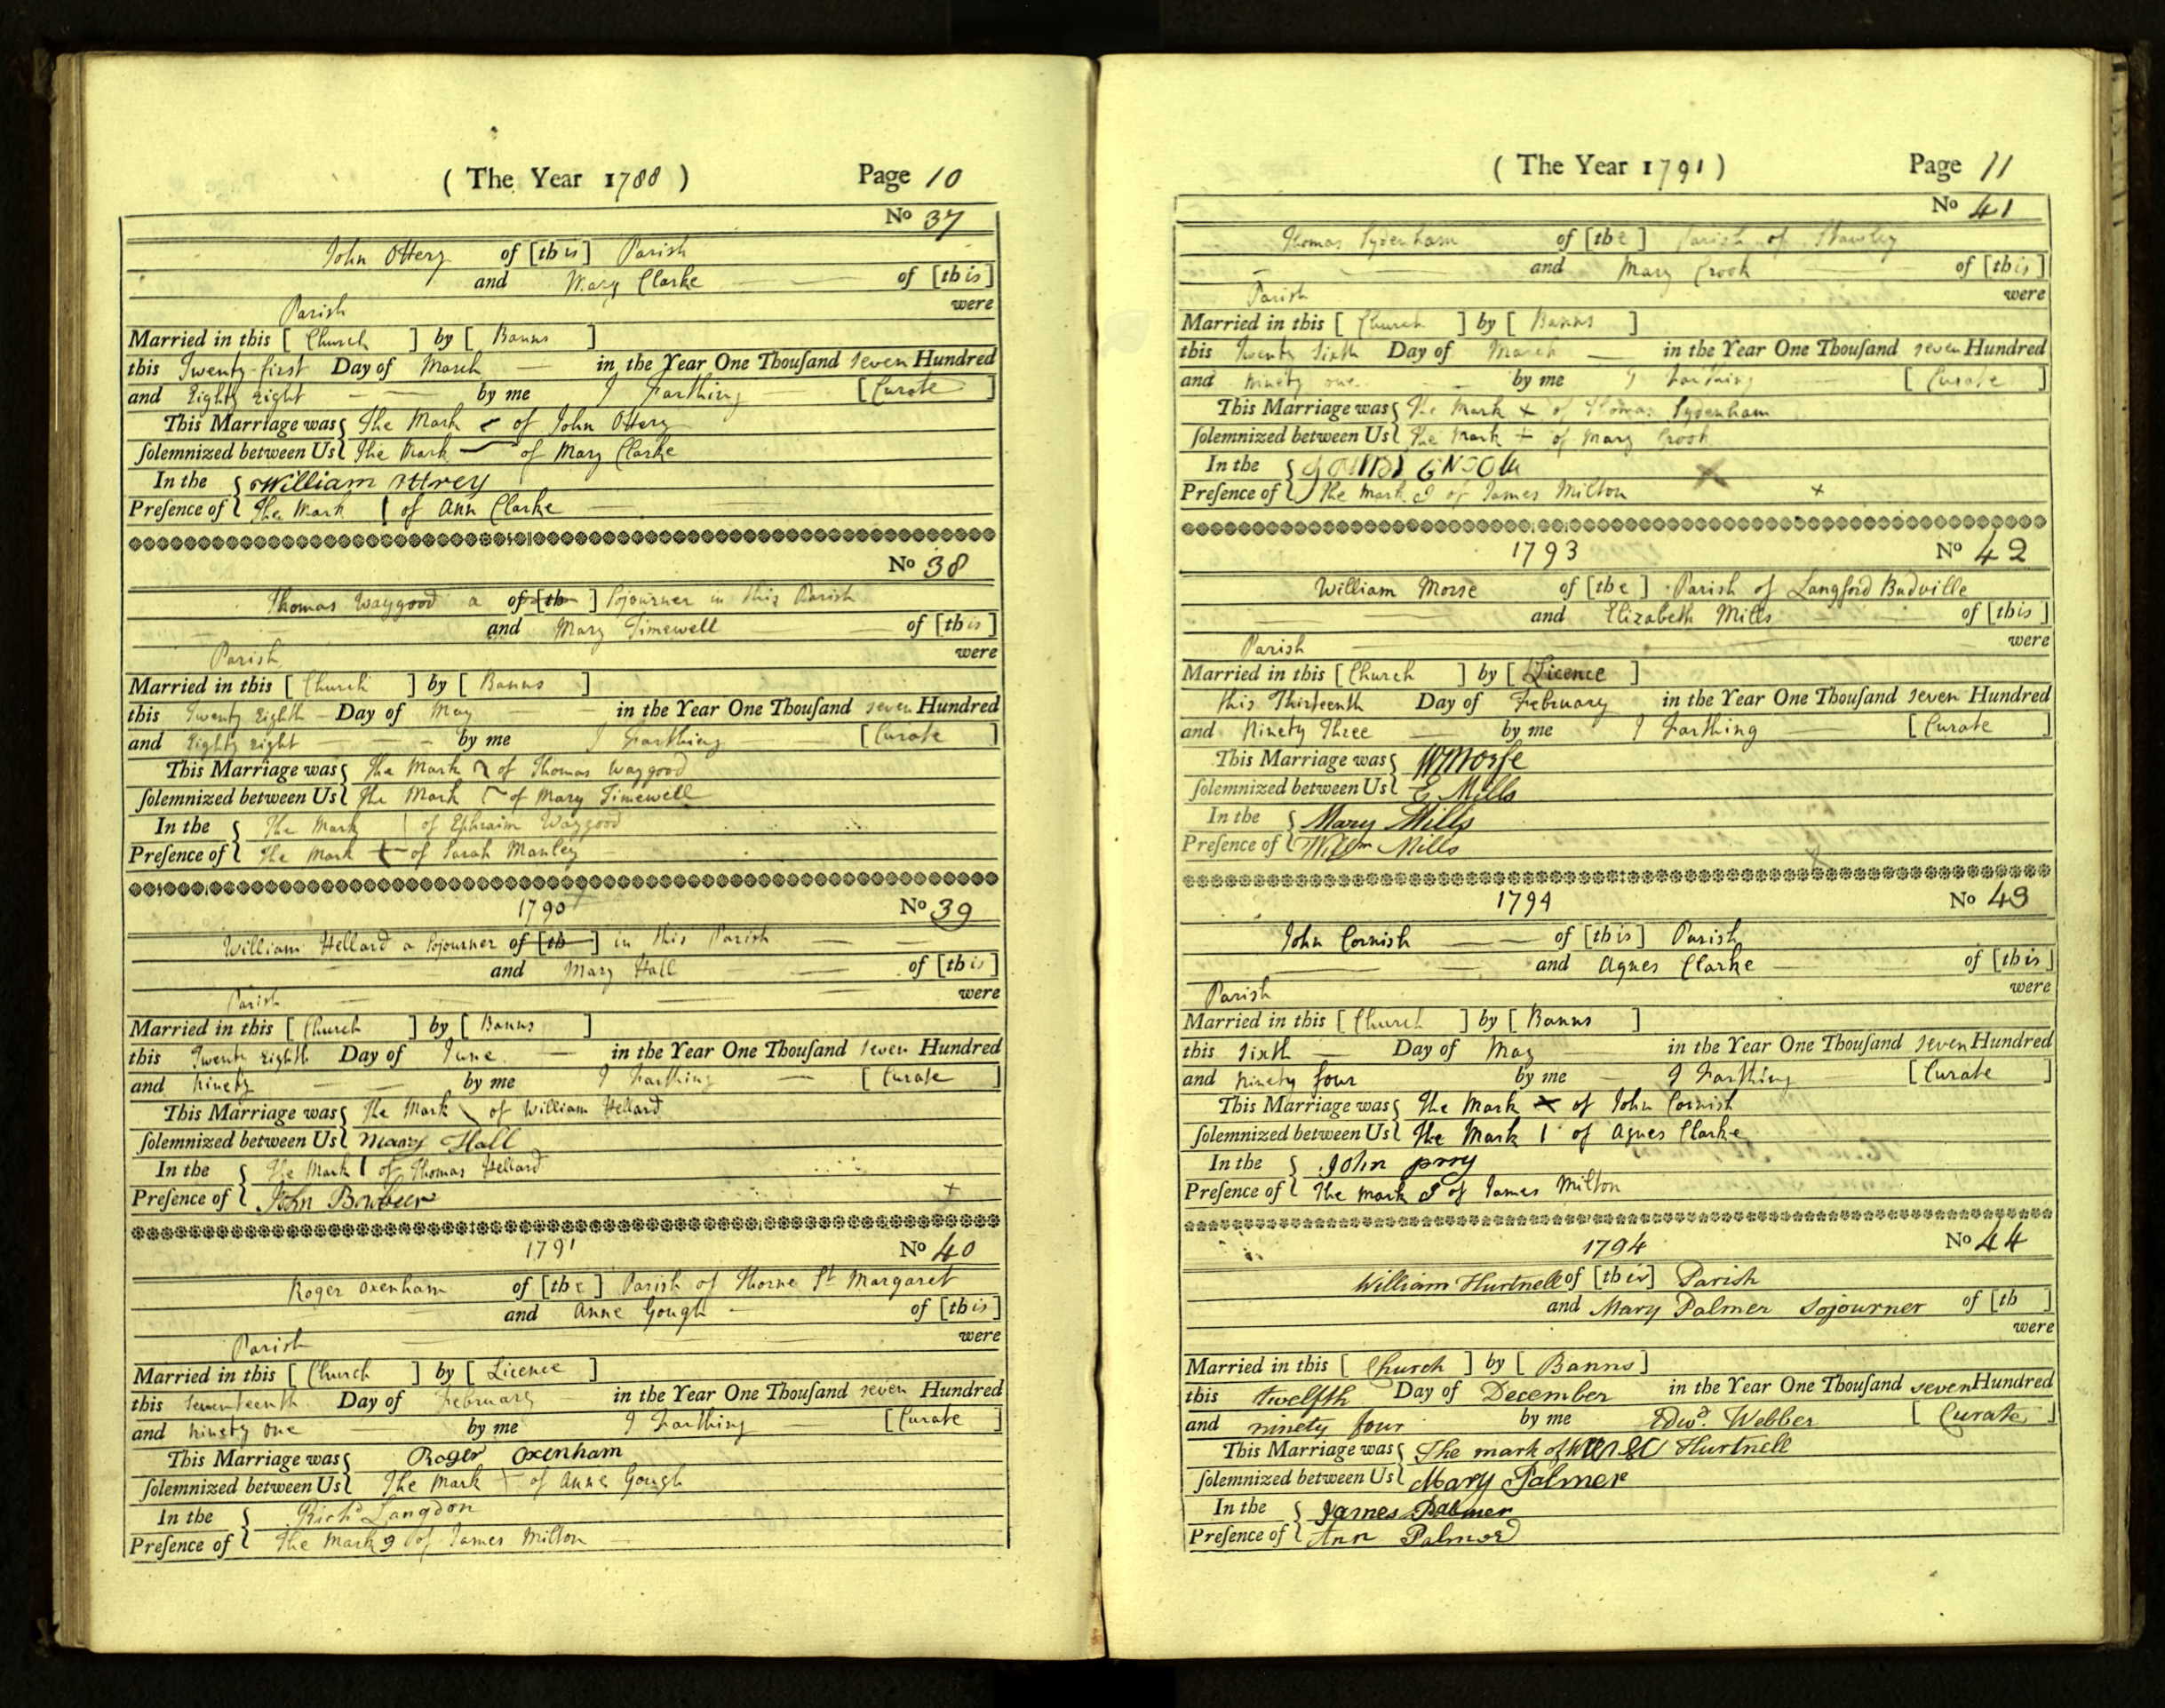 ( The Year 1788 ) Page 10
No 37
John Ottery of [this] Parish
and Mary Clarke of [this]
Parish were
Married in this [ Church ] by [ Banns ]
this Twenty first Day of March in the Year One Thouſand seven Hundred
and Eighty Eight by me J Farthing [ Curate ]
This Marriage was The Mark of John Ottery
ſolemnized between Us The Mark of Mary Clarke
In the William
Preſence of The Mark of Ann Clarke
No 38
Thomas Waygood a of [th ] Sojourner in this Parish
and Mary Timewell of [this]
Parish were
Married in this [ Church ] by [ Banns ]
this Twenty Eighth Day of May in the Year One Thouſand seven Hundred
and Eighty Eight by me J Farthing [ Curate ]
This Marriage was The Mark of Thomas Waygood
ſolemnized between Us The Mark of Mary Timewell
In the The Mark of Ephraim Waygood
Preſence of The Mark of Sarah Manley
1790 No 39
William Hellard a Sojourner of [th ] in this Parish
and Mary Hall of [this]
Parish were
Married in this [ Church ] by [ Banns ]
this Twenty Eighth Day of June in the Year One Thouſand seven Hundred
and Ninety by me J Farthing [ Curate ]
This Marriage was The Mark of William Hellard
ſolemnized between Us Mary Hall
In the The Mark of Thomas Hellard
Preſence of John Bowbeer
1791 No 40
Roger Oxenham of [the] Parish of Thorne St Margaret
and Anne Gough of [this]
Parish were
Married in this [ Church ] by [ Licence ]
this Seventeenth Day of February in the Year One Thouſand seven Hundred
and Ninety one by me J Farthing [ Curate ]
This Marriage was Roger Oxenham
ſolemnized between Us The Mark of Anne Gough
In the Richd Langdon
Preſence of The Mark of James Milton
( The Year 1791 ) Page 11
No 41
Thomas Sydenham of [the] Parish of Stawley
and Mary Crook of [this]
Parish were
Married in this [ Church ] by [ Banns ]
this Twenty Sixth Day of March in the Year One Thouſand seven Hundred
and Ninety one by me J Farthing [ Curate ]
This Marriage was The Mark + of Thomas Sydenham
ſolemnized between Us The Mark + of Mary Crook
In the
Preſence of The Mark of James Milton
1793 No 42
William Morse of [the] Parish of Langford Budville
and Elizabeth Mills of [this]
Parish were
Married in this [ Church ] by [ Licence ]
this Thirteenth Day of February in the Year One Thouſand seven Hundred
and Ninety Three by me J Farthing [ Curate ]
This Marriage was W Morſe
ſolemnized between Us E Mills
In the Mary Mills
Preſence of Willm Mills
1794 No 43
John Cornish of [this] Parish
and Agnes Clarke of [this]
Parish were
Married in this [ Church ] by [ Banns ]
this Sixth Day of May in the Year One Thouſand seven Hundred
and Ninety four by me J Farthing [ Curate ]
This Marriage was The Mark x of John Cornish
ſolemnized between Us The Mark of Agnes Clarke
In the John
Preſence of The Mark of James Milton
1794 No 44
William Hurtnell of [this] Parish
and Mary Palmer Sojourner of [th ]
were
Married in this [ Church ] by [ Banns ]
this twelfth Day of December in the Year One Thouſand seven Hundred
and ninety four by me Edwd. Webber [ Curate ]
This Marriage was The mark of Hurtnell
ſolemnized between Us Mary Palmer
In the James Palmer
Preſence of Ann Palmer